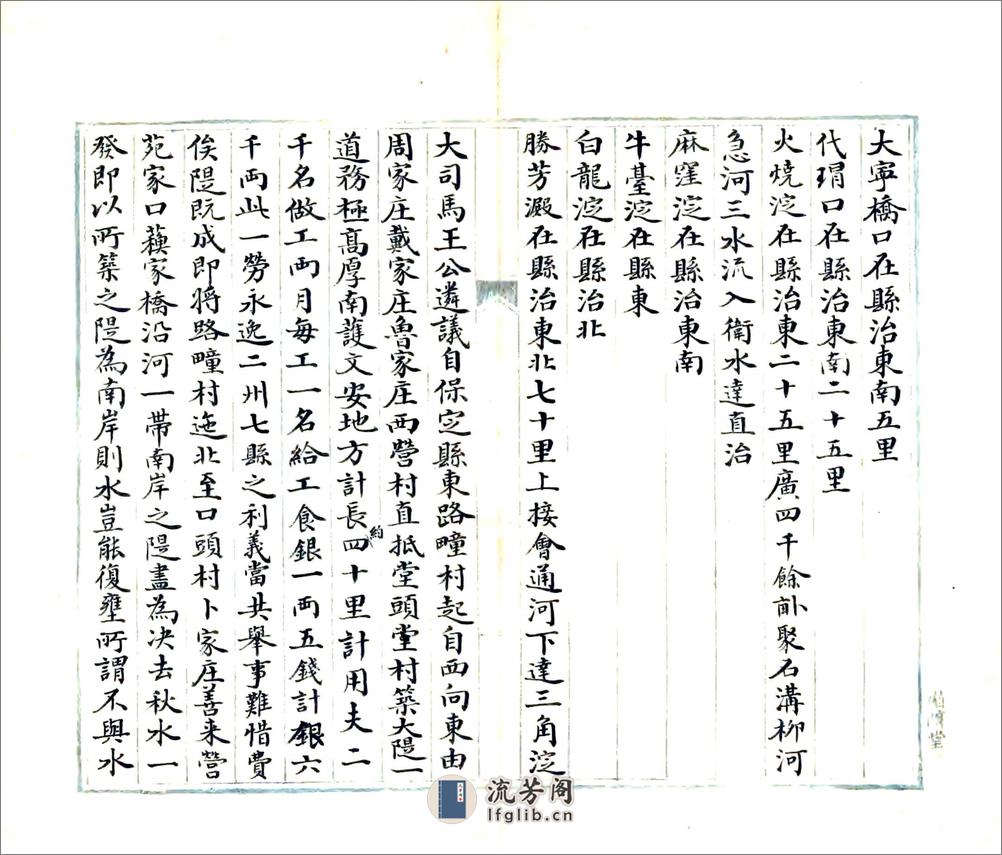 大寧橋口在縣治東南五里
代瑁口在縣治東南二十五里
火燒淀在縣治東二十五里廣四千餘畝聚石溝柳河
急河三水流入衛水達直沽
麻窪淀在縣治東南
牛臺淀在縣東
白龍淀在縣治北
勝芳澱在縣治東北七十里上接會通河下達三角淀
大司馬王公遴議自保定縣東路疃村起自西向東由
周家庄戴家庄魯家庄西營村直抵堂頭堂村築大隄一
道務極高厚南護文安地方計長約四十里計用夫二
千名做工兩月每工一名給工食銀一兩五錢計銀六
千兩此一勞永逸二州七縣之利義當共舉事難惜費
俟隄既成即將路疃村迤北至口頭村卜家庄善来營
苑家口蘓家橋沿河一帶南岸之隄盡為决去秋水一
發即以所築之隄為南岸則水豈能復壅所謂不與水
流芳阁
lfglib.cn